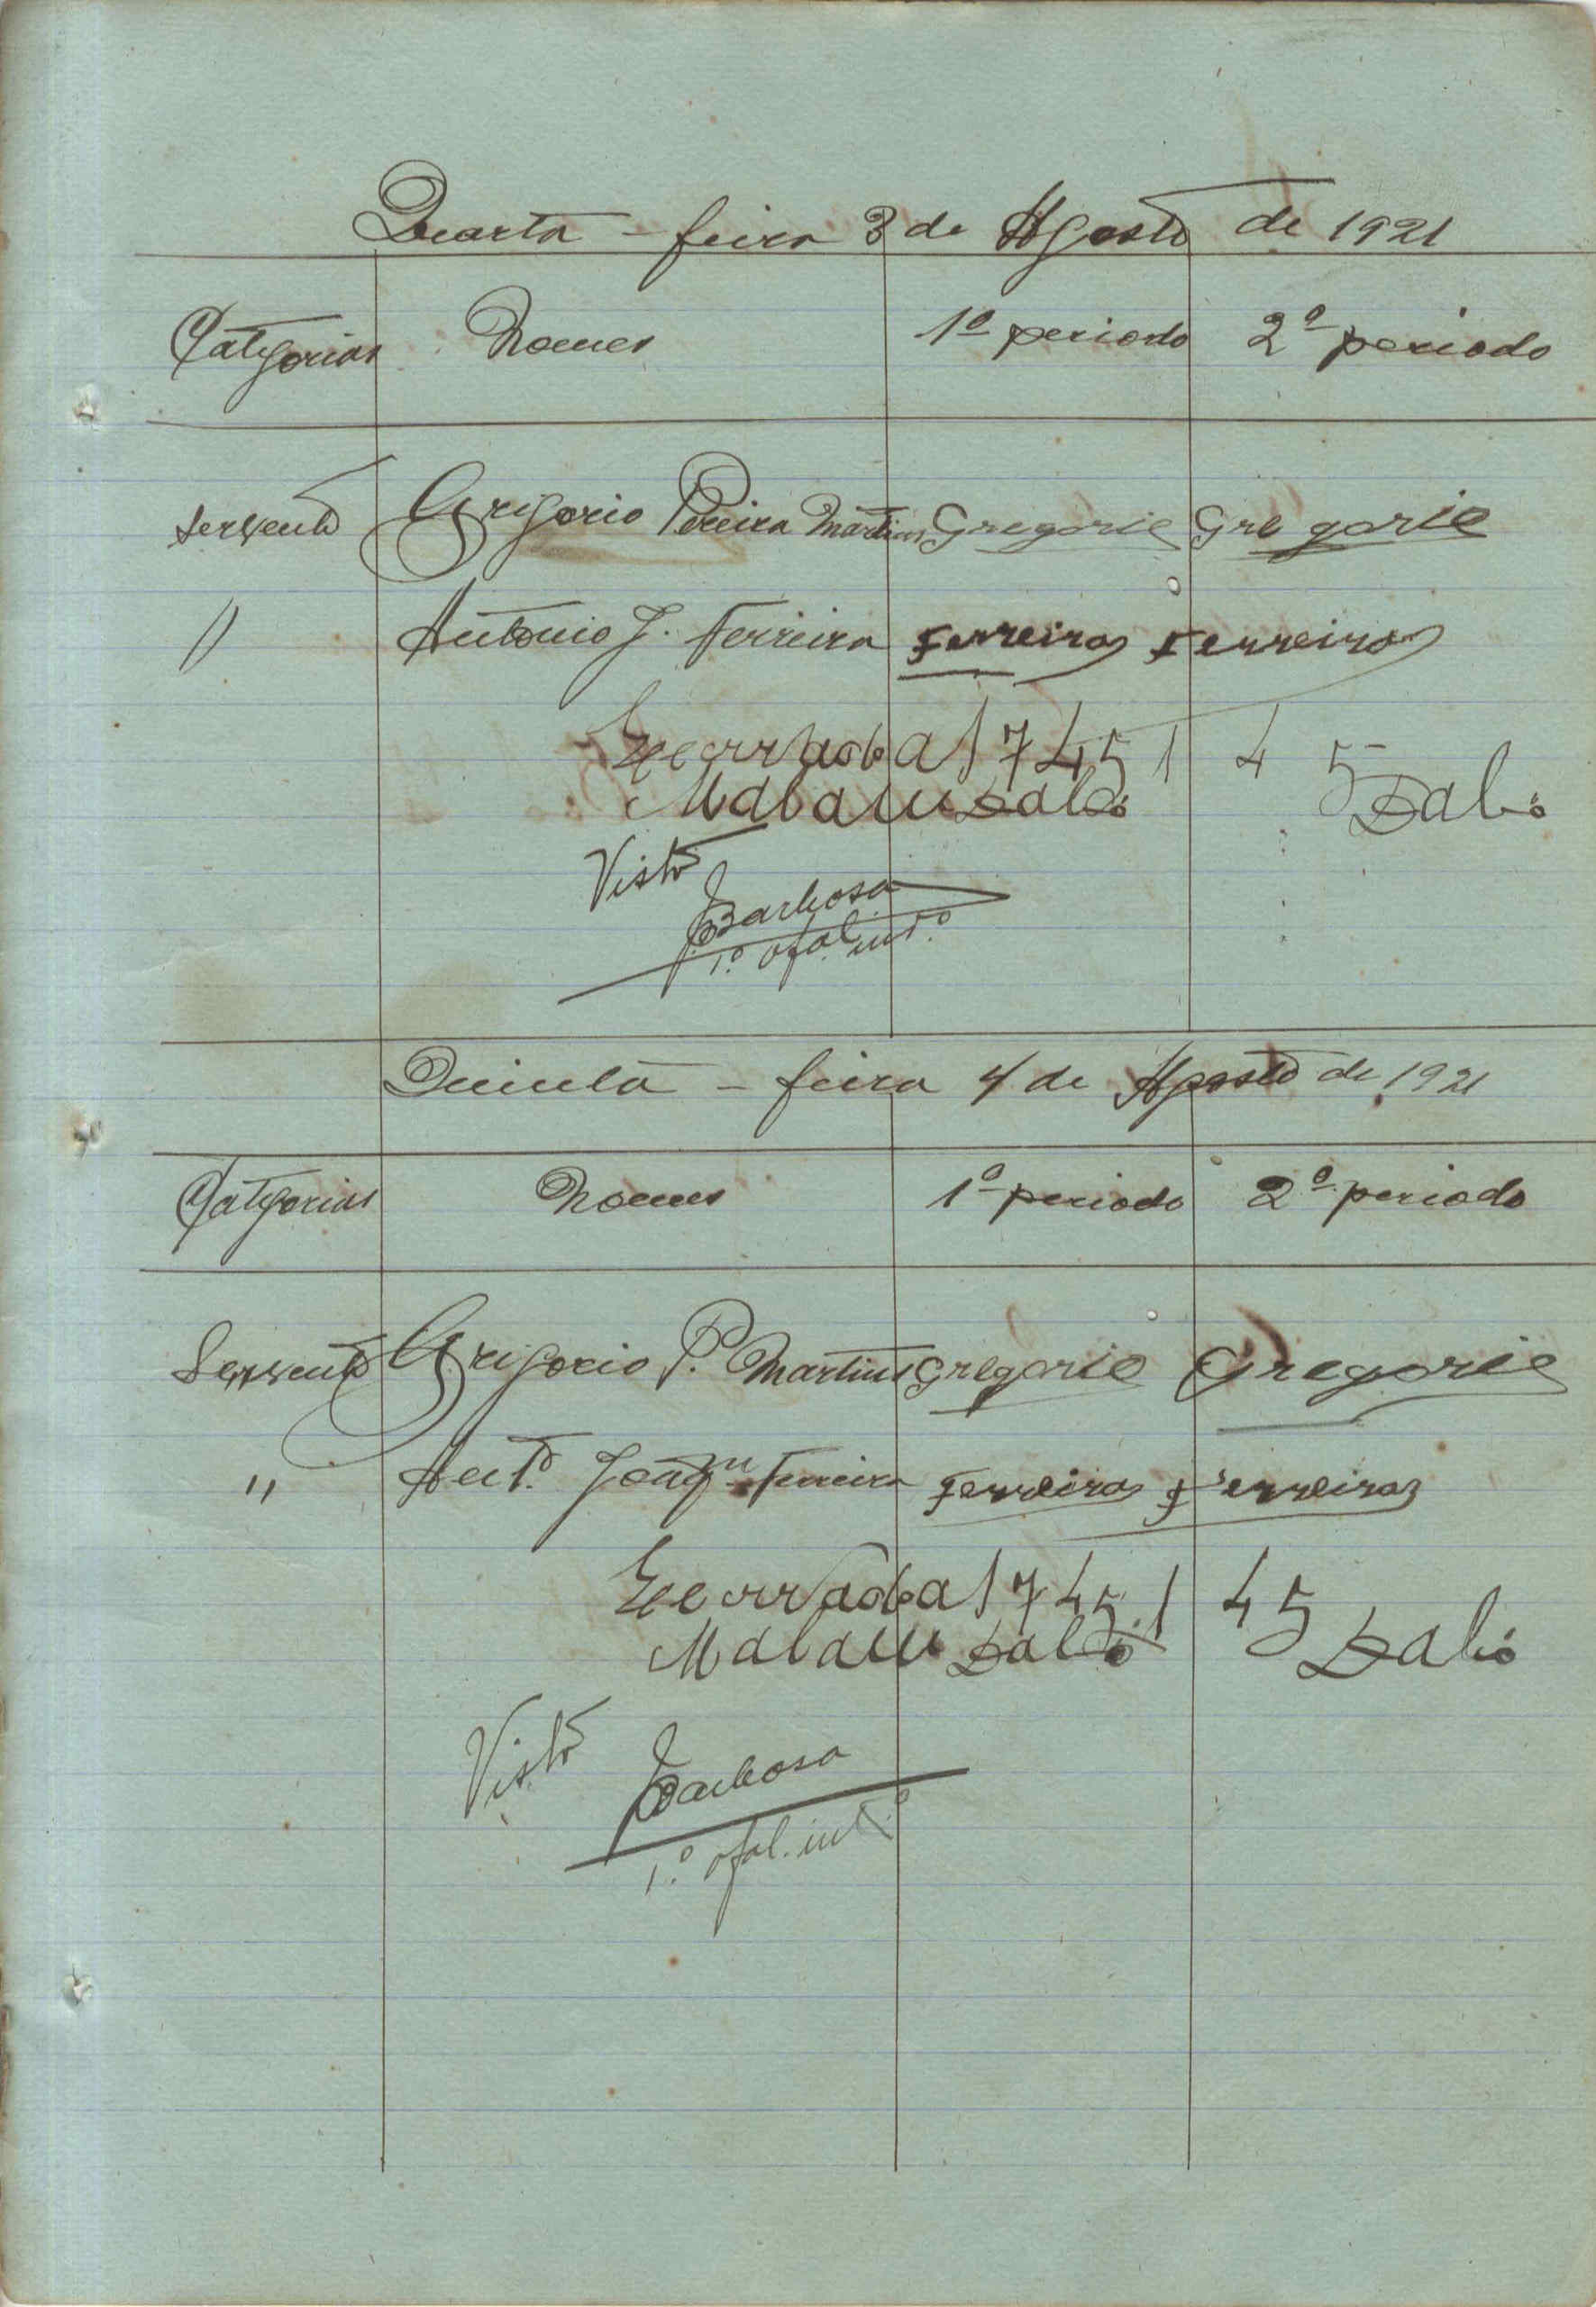 Quarta-feira 3 de Agosto de 1921
Categorias Nomes 1º periodo 2º periodo
Servente Grigorio Pereira Martins Gregorio Gregorio
" Antonio J. Ferreira Ferreira Ferreira
a 1 7 45 1 4 5
Dabó Dabó
Visto
Barbosa
1.º ofal. intº
Quinta-feira 4 de Agosto de 1921
Categorias Nomes 1º periodo 2º periodo
Servente Grigorio P. Martins Gregorio Gregorio
" Antº Joaqm Ferreira Ferreira Ferreira
a 1 7 45 1 45
Dabó Dabó
Visto
Barbosa
1.º ofal. intº